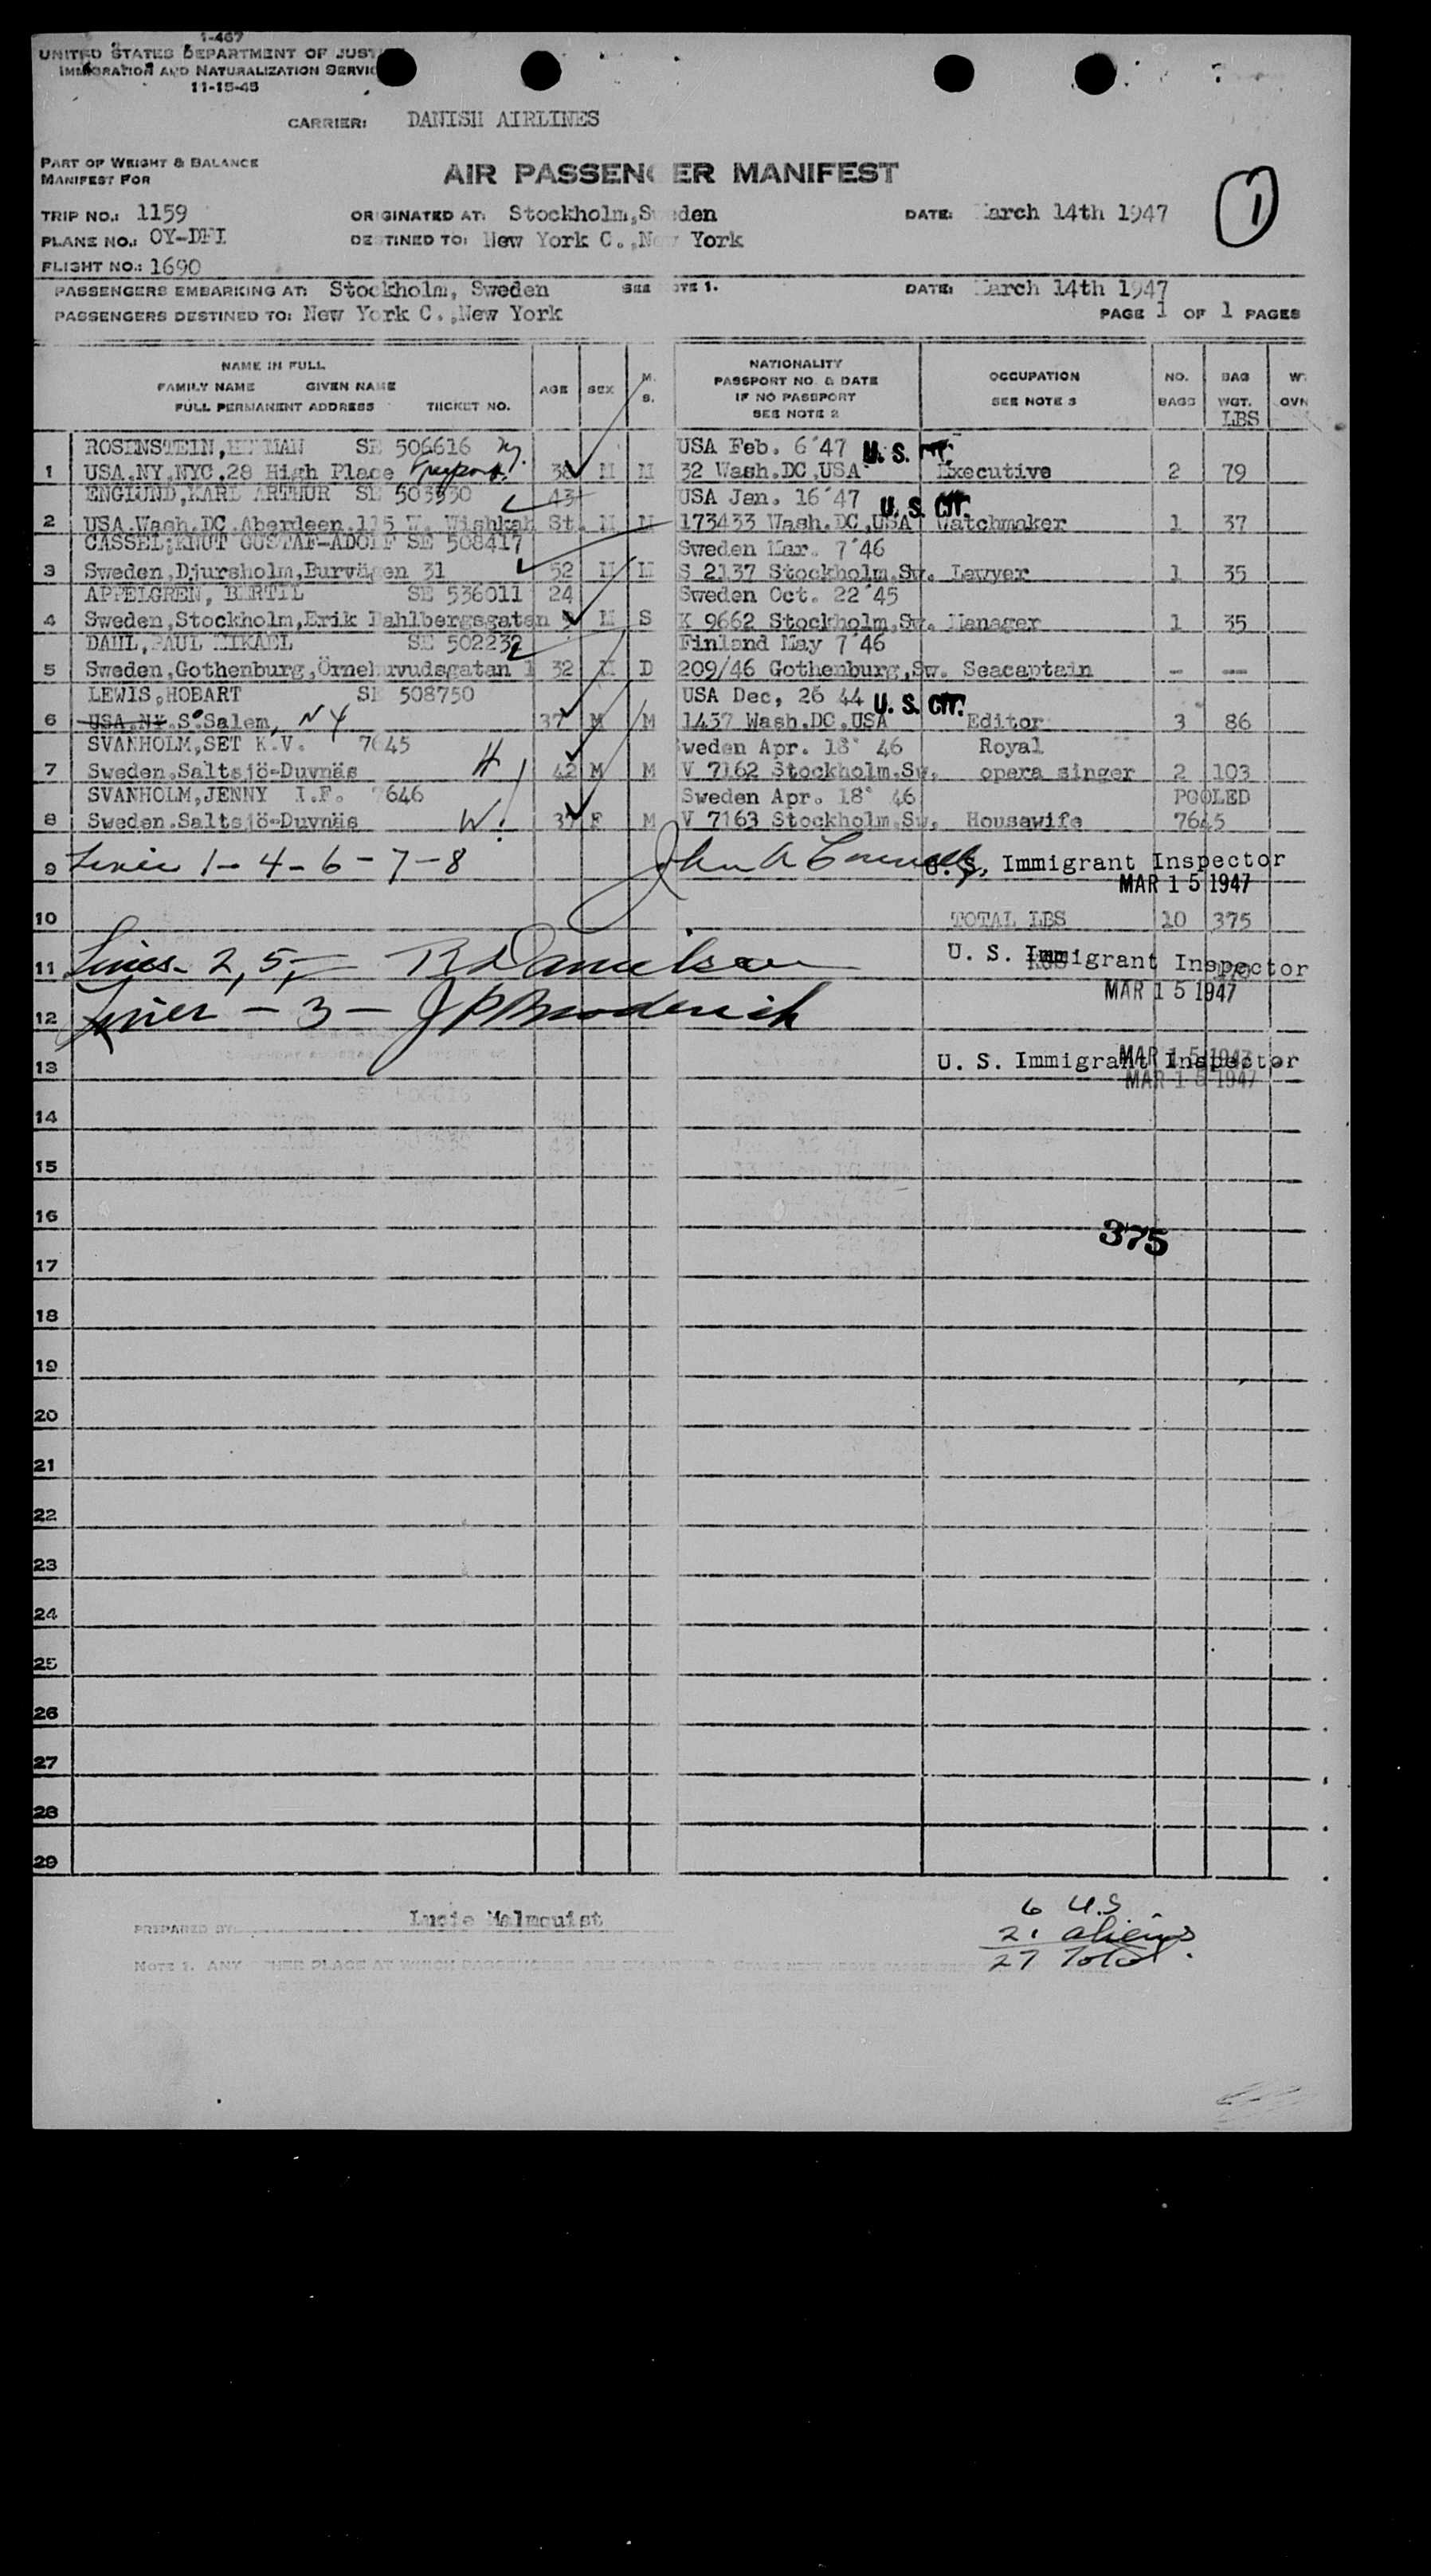 1-467
UNITED STATES DEPARTMENT OF JUST
IMMIGRATION AND NATURALIZATION SERVIC
11-15-45
CARRIER: DANISH AIRLINES
PART OF WEIGHT & BALANCE
MANIFEST FOR
AIR PASSENGER MANIFEST
1
TRIP NO.: 1159 ORIGINATED AT: Stockholm, Sweden DATE: March 14th 1947
PLANE NO.: OY-DFI DESTINED TO: New York C., New York
FLIGHT NO.: 1690
PASSENGERS EMBARKING AT: Stockholm, Sweden SEE NOTE 1. DATE: March 14th 1947
PASSENGERS DESTINED TO: New York C., New York PAGE 1 OF 1 PAGES
NAME IN FULL
FAMILY NAME GIVEN NAME
FULL PERMANENT ADDRESS TICKET NO.
AGE SEX M. S.
NATIONALITY
PASSPORT NO. & DATE
IF NO PASSPORT
SEE NOTE 2
OCCUPATION
SEE NOTE 3
NO. BAGS
BAG WGT. LBS
WT OVN
ROSENSTEIN, HERMAN SE 506616 USA Feb. 6'47 U. S. CIT.
1 USA.NY.NYC.28 High Place Freeport 38 M M 32 Wash.DC.USA Executive 2 79
ENGLUND, KARL ARTHUR SE 503530 43 USA Jan. 16'47 U. S. CIT.
2 USA.Wash.DC.Aberdeen.115 W. Wishkah St. M M 173433 Wash.DC.USA Watchmaker 1 37
CASSEL; KNUT GUSTAF-ADOLF SE 508417 Sweden Mar. 7'46
3 Sweden, Djursholm, Burvägen 31 52 M M S 2137 Stockholm, Sw. Lawyer 1 35
APPELGREN, BERTIL SE 536011 24 Sweden Oct. 22'45
4 Sweden, Stockholm, Erik Dahlbergsgatan M S K 9662 Stockholm, Sw. Manager 1 35
DAHL, PAUL MIKAEL SE 502232 Finland May 7'46
5 Sweden, Gothenburg, Örnehuvudsgatan 1 32 M D 209/46 Gothenburg, Sw. Seacaptain - --
LEWIS, HOBART SE 508750 USA Dec, 26 44 U. S. CIT.
6 USA.NY.S.Salem, NY 37 M M 1457 Wash.DC.USA Editor 3 86
SVANHOLM, SET K.V. 7645 Sweden Apr. 18' 46 Royal
7 Sweden.Saltsjö-Duvnäs H 42 M M V 7162 Stockholm.Sw. opera singer 2 103
SVANHOLM, JENNY I.F. 7646 Sweden Apr. 18' 46 POOLED
8 Sweden.Saltsjö-Duvnäs W. 37 F M V 7163 Stockholm.Sw. Housewife 7645
9 Lines 1-4-6-7-8 John A U. S. Immigrant Inspector
MAR 15 1947
10 TOTAL LBS 10 375
11 Lines- 2, 5, - R Danielson U. S. Immigrant Inspector
KGS 170
MAR 15 1947
12 Lines - 3 - J P Broderick
13 U. S. Immigrant Inspector
MAR 15 1947
MAR 15 1947
14
15
16
375
17
18
19
20
21
22
23
24
25
26
27
28
29
PREPARED BY: Lucie Malmquist
6 U.S
21 aliens
27 Total
NOTE 1. ANY OTHER PLACE AT WHICH PASSENGERS ARE